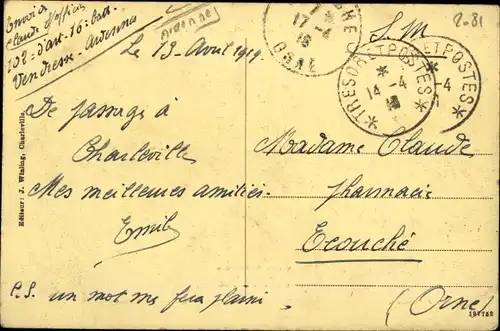 Envoi de
Claude
108e d'art - 16e batt
Vendresse - Ardennes
Ardennes
S.M
2-81
17-4
ORNE
TRESOR ET POSTES
14-4
TRESOR ET POSTES
-4
Le 13 Avril 1919
De passage à
Charleville
Mes meilleures amitiés.
Emile
P.S. un mot me fera plaisir
Madame Claude
pharmacie
Ecouché
(Orne)
Editeur: J. Winling, Charleville.